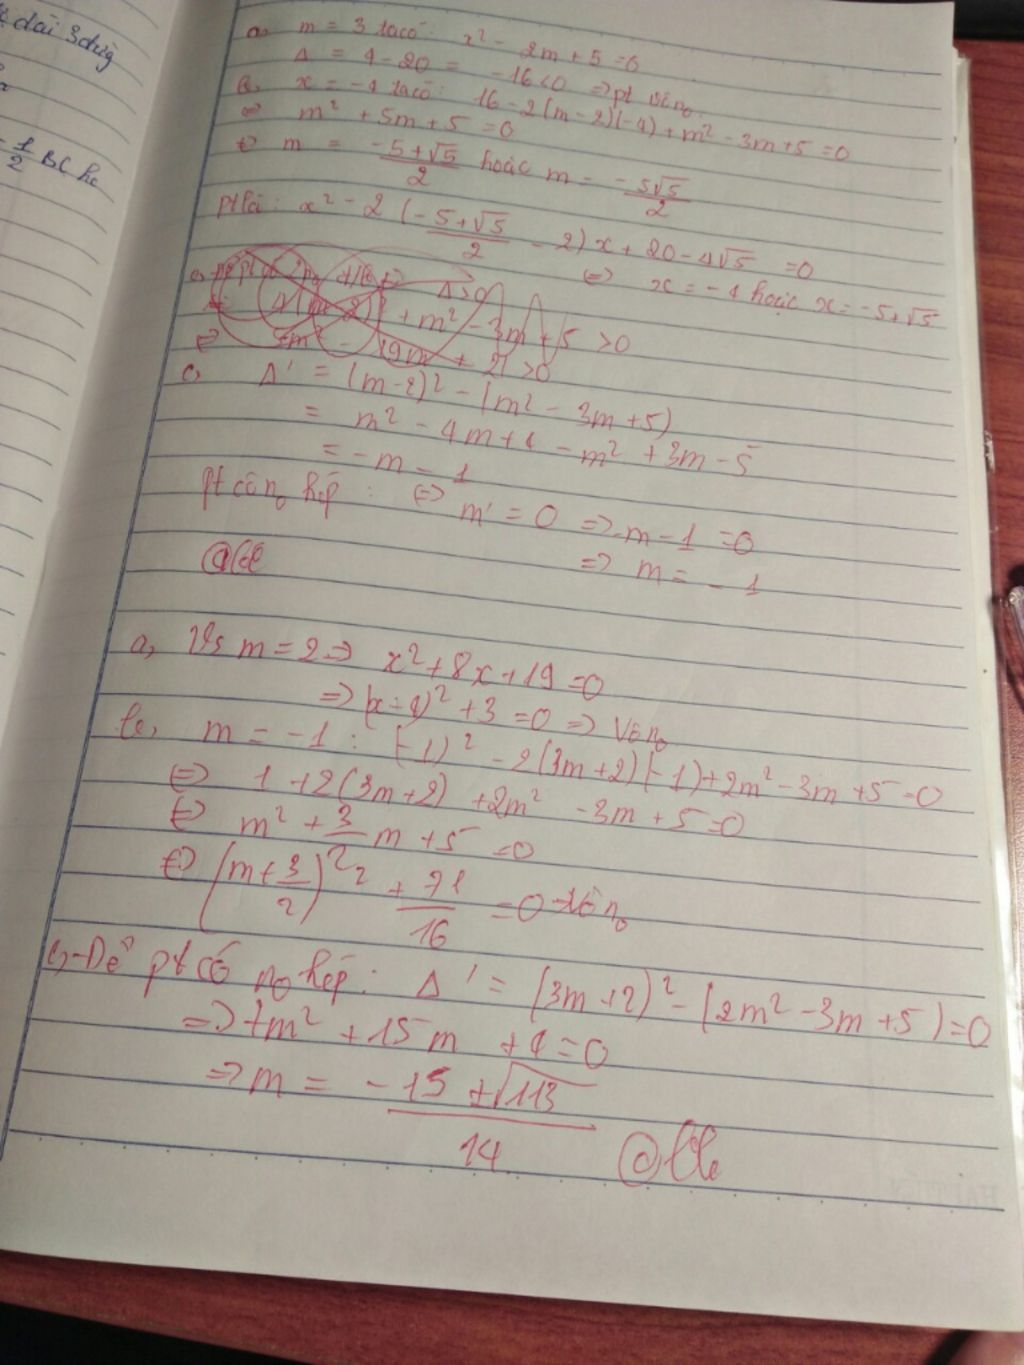 dài 3 dòng
= 1/2 BC
a, m = 3 ta có: x² - 2m + 5 = 0
Δ = 4 - 20 = -16 < 0 ⇒ pt vô n₀
b, x = -4 ta có: 16 - 2(m - 2)(-4) + m² - 3m + 5 = 0
⇔ m² + 5m + 5 = 0
⇔ m = (-5 + √5)/2 hoặc m = (-5√5)/2
pt là: x² - 2((-5 + √5)/2 - 2)x + 20 - 4√5 = 0
⇔ x = -4 hoặc x = -5 + √5
Δ > 0
+ m² - 3m + 5 > 0
⇔ - 19m + 21 > 0
c, Δ' = (m - 2)² - (m² - 3m + 5)
= m² - 4m + 4 - m² + 3m - 5
= -m - 1
pt có n₀ kép: ⇔ m' = 0 ⇒ -m - 1 = 0
⇒ m = -1
a, Vs m = 2 ⇒ x² + 8x + 19 = 0
⇒ (x - 4)² + 3 = 0 ⇒ Vô n₀
b, m = -1: (-1)² - 2(3m + 2)(-1) + 2m² - 3m + 5 = 0
⇔ 1 + 2(3m + 2) + 2m² - 3m + 5 = 0
⇔ m² + 3/2 m + 5 = 0
⇔ (m + 3/2)² + 71/16 = 0 ⇒ vô n₀
c, Để pt có n₀ kép: Δ' = (3m + 2)² - (2m² - 3m + 5) = 0
⇒ 7m² + 15m + 4 = 0
⇒ m = (-15 + √113)/14